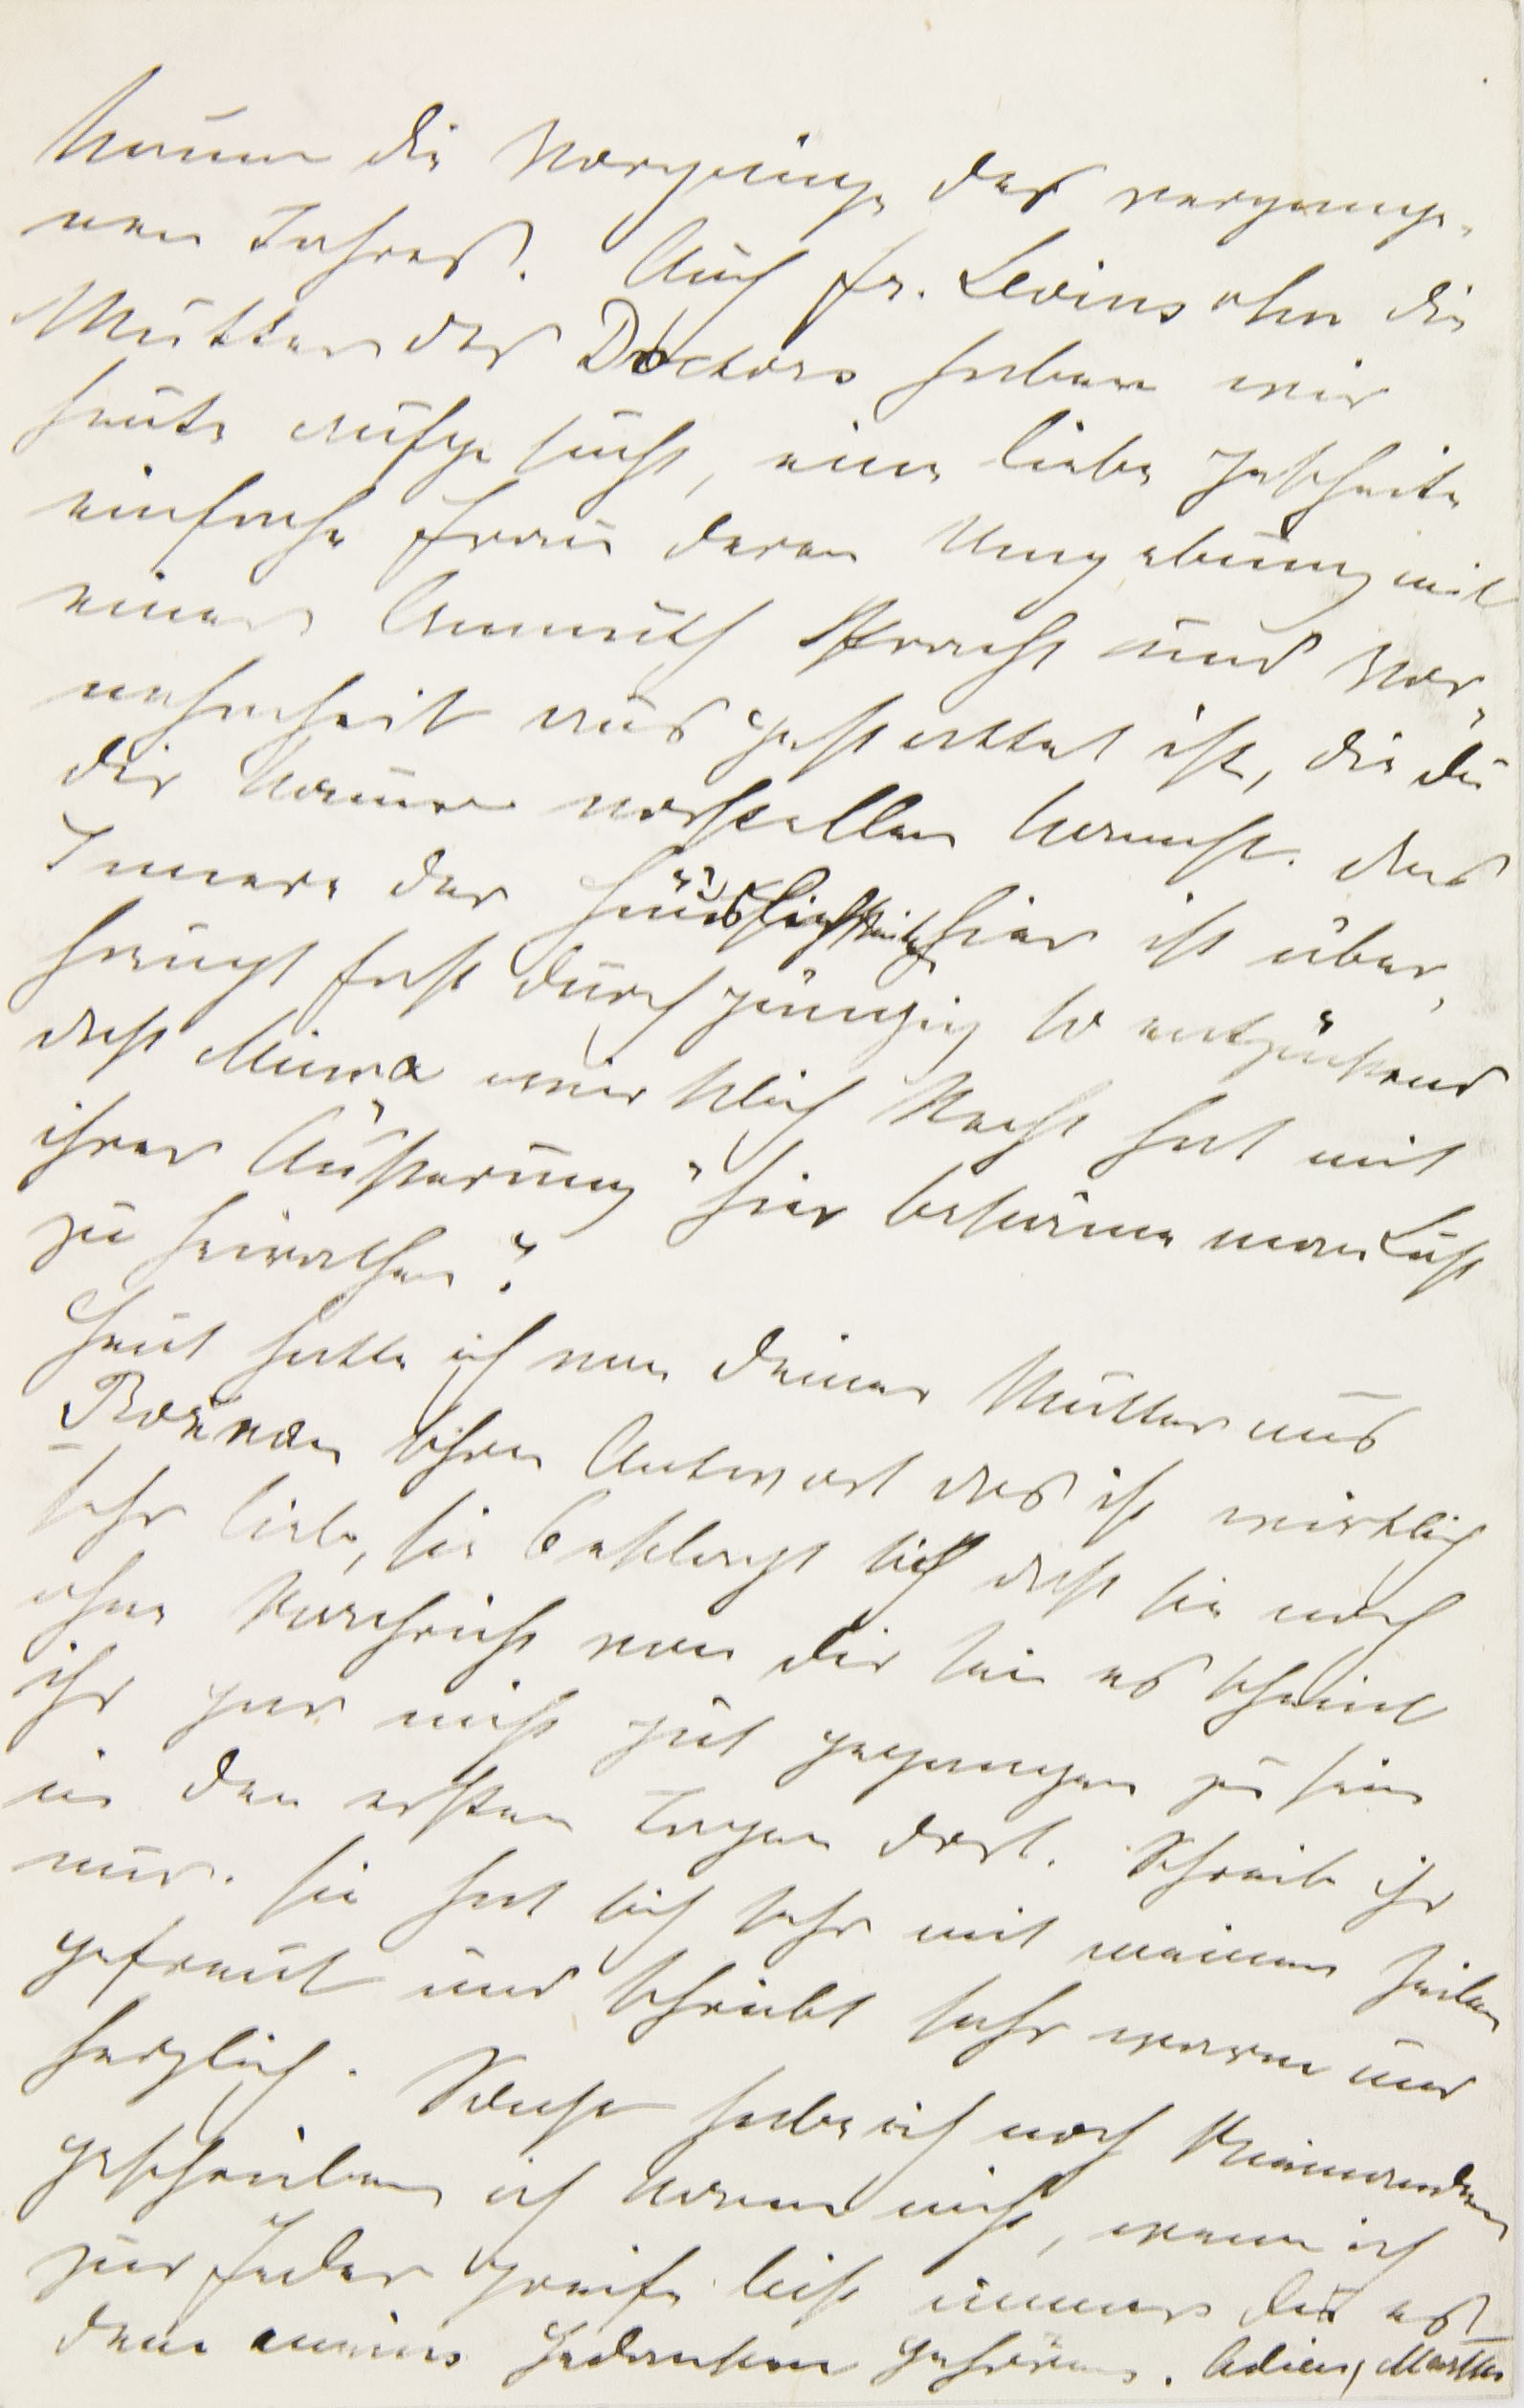 kaum die Vorgänge des vergange-
nen Jahres. Auch Fr. Levinsohn die
Mutter des Doctors haben wir
heute aufgesucht, eine liebe gescheite
einfache Frau deren Umgebung mit
einer Anmuth Pracht und Vor-
nehmheit ausgestattet ist, die du
dir kaum vorstellen kannst. Das
Innere der Häuslichkeit hier ist über-
haupt fast durchgängig so entzückend
daß Minna wirklich Recht hat mit
ihrer Äußerung "hier bekäme man Lust
zu heirathen"
Heut hatte ich von deiner Mutter aus
schon Antwort das ist wirklich
sehr lieb, sie beklagt sich daß sie noch
ohne Nachricht von dir sei es scheint
ihr gar nicht gut gegangen zu sein
in den ersten Tagen dort. Schreib ihr
nur. Sie hat sich sehr mit meinen Zeilen
gefreut und schreibt sehr warm und
herzlich. Sonst habe ich noch Niemandem
geschrieben ich kann nicht, wenn ich
zur Feder greife bist immer du es
dem meine Gedanken gehören. Adieu, Martha